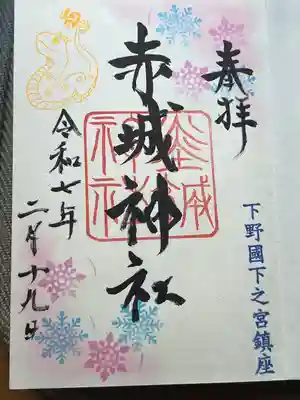 奉拝
下野國下之宮鎮座
赤城神社
令和七年
二月十九日